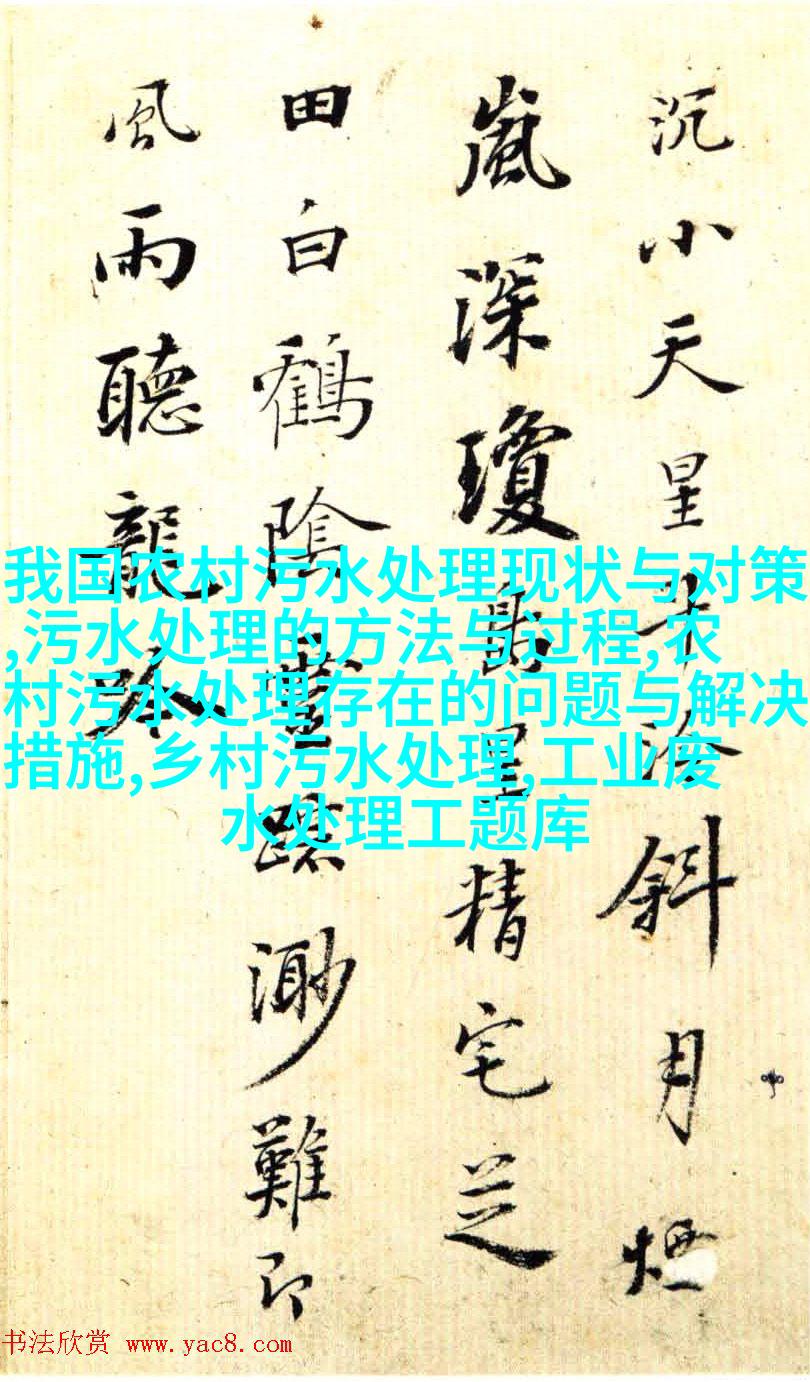 沉小天星斗冷斜月煙
嵐深瓊島星精宅芝
田白鶴陰靈蹤渺難即
風雨聽龍吟
我国农村污水处理现状与对策
,污水处理的方法与过程,农
村污水处理存在的问题与解决
措施,乡村污水处理,工业废
水处理工题库
书法欣赏 www.yac8.com